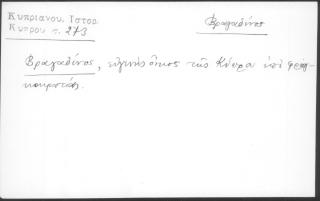 Κυπριανου. Ιστορ.
Κυπρου σ. 273
Βραγαδίνος
Βραγαδίνος, εὐγενὴς οἶκος τῆς Κύπρου ἐπὶ φραγ-
κοκρατίας.